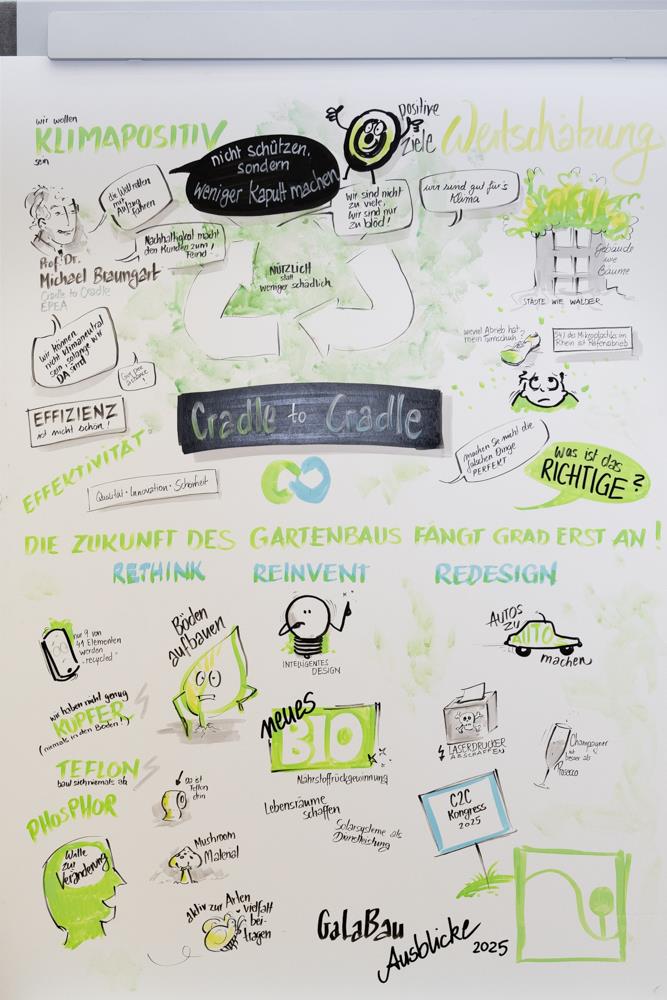 wir wollen
KLIMAPOSITIV
sein
nicht schützen,
sondern
weniger kaputt machen
positive
Ziele
Wertschätzung
die Welt retten
mit
Aufzug
fahren
Nachhaltigkeit macht
den Kunden zum
Feind!
Prof. Dr.
Michael Braungart
Cradle to Cradle
EPEA
wir sind nicht
zu viele,
wir sind nur
zu blöd!
wir sind gut für's
Klima
Gebäude
wie
Bäume
STÄDTE WIE WÄLDER
NÜTZLICH
statt
weniger schädlich
wir können
nicht klimaneutral
sein solange wir
DA sind
wieviel Abrieb hat
mein Turnschuh?
des Mikroplastiks im
Rhein ist Reifenabrieb
EFFIZIENZ
ist nicht schön!
EFFEKTIVITÄT
Qualität · Innovation · Schönheit
Cradle to Cradle
machen Sie nicht die
falschen Dinge
PERFEKT
was ist das
RICHTIGE?
DIE ZUKUNFT DES GARTENBAUS FÄNGT GRAD ERST AN!
RETHINK REINVENT REDESIGN
nur 9 von
41 Elementen
werden
"recycled"
Böden
aufbauen
INTELLIGENTES
DESIGN
AUTOS
ZU
AUTO
machen
wir haben nicht genug
KUPFER
(niemals in den Boden!)
neues
BIO
LASERDRUCKER
ABSCHAFFEN
Champagner
ist
besser als
Prosecco
TEFLON
baut sich niemals ab
da ist
Teflon
drin
Nährstoffrückgewinnung
PHOSPHOR
Lebensräume
schaffen
Solarsysteme als
Dienstleistung
C2C
Kongress
2025
Wille
zur
Veränderung
Mushroom
Material
aktiv zur Arten
vielfalt
bei-
tragen
GaLaBau
Ausblicke 2025